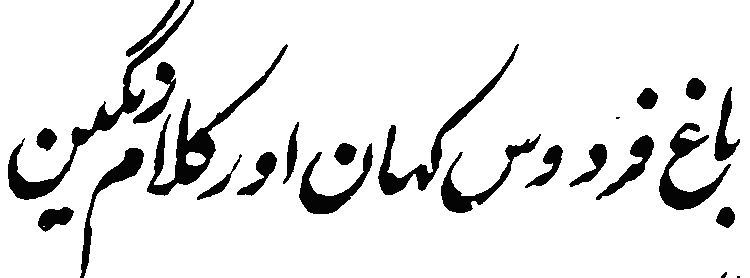 باغ فردوس کہان اور کلام رنگین